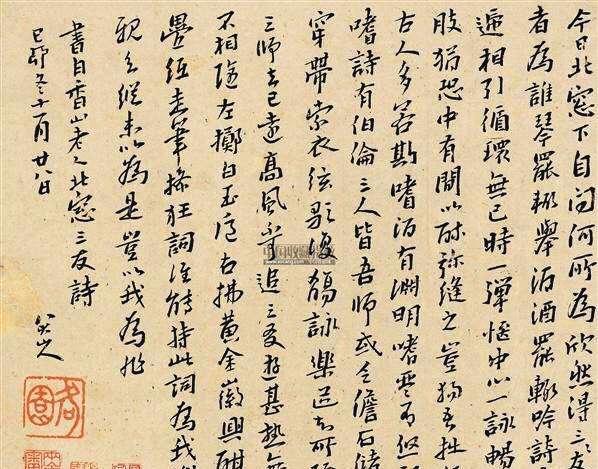 今日北窓下自问何所為欣然得三友
者為誰琴罷輙舉酒酒罷輙吟詩
遞相引循環無已時一彈愜中心一詠暢
肢猶恐中有間以酔弥縫之豈獨吾拙
古人多若斯嗜酒有淵明嗜琴有
嗜詩有伯倫三人皆吾師或乏儋石儲
穿帶索衣絃歌復觴詠樂道知所
三師去已遠高風不可追三友游甚熟無
不相随左擲白玉巵右拂黃金徽興酣
疊紙走筆操狂詞谁能持此詞為我
親知縱未以為是豈以我為非
書白香山老人北窓三友詩
己卯冬十一月廿八日
八大山人